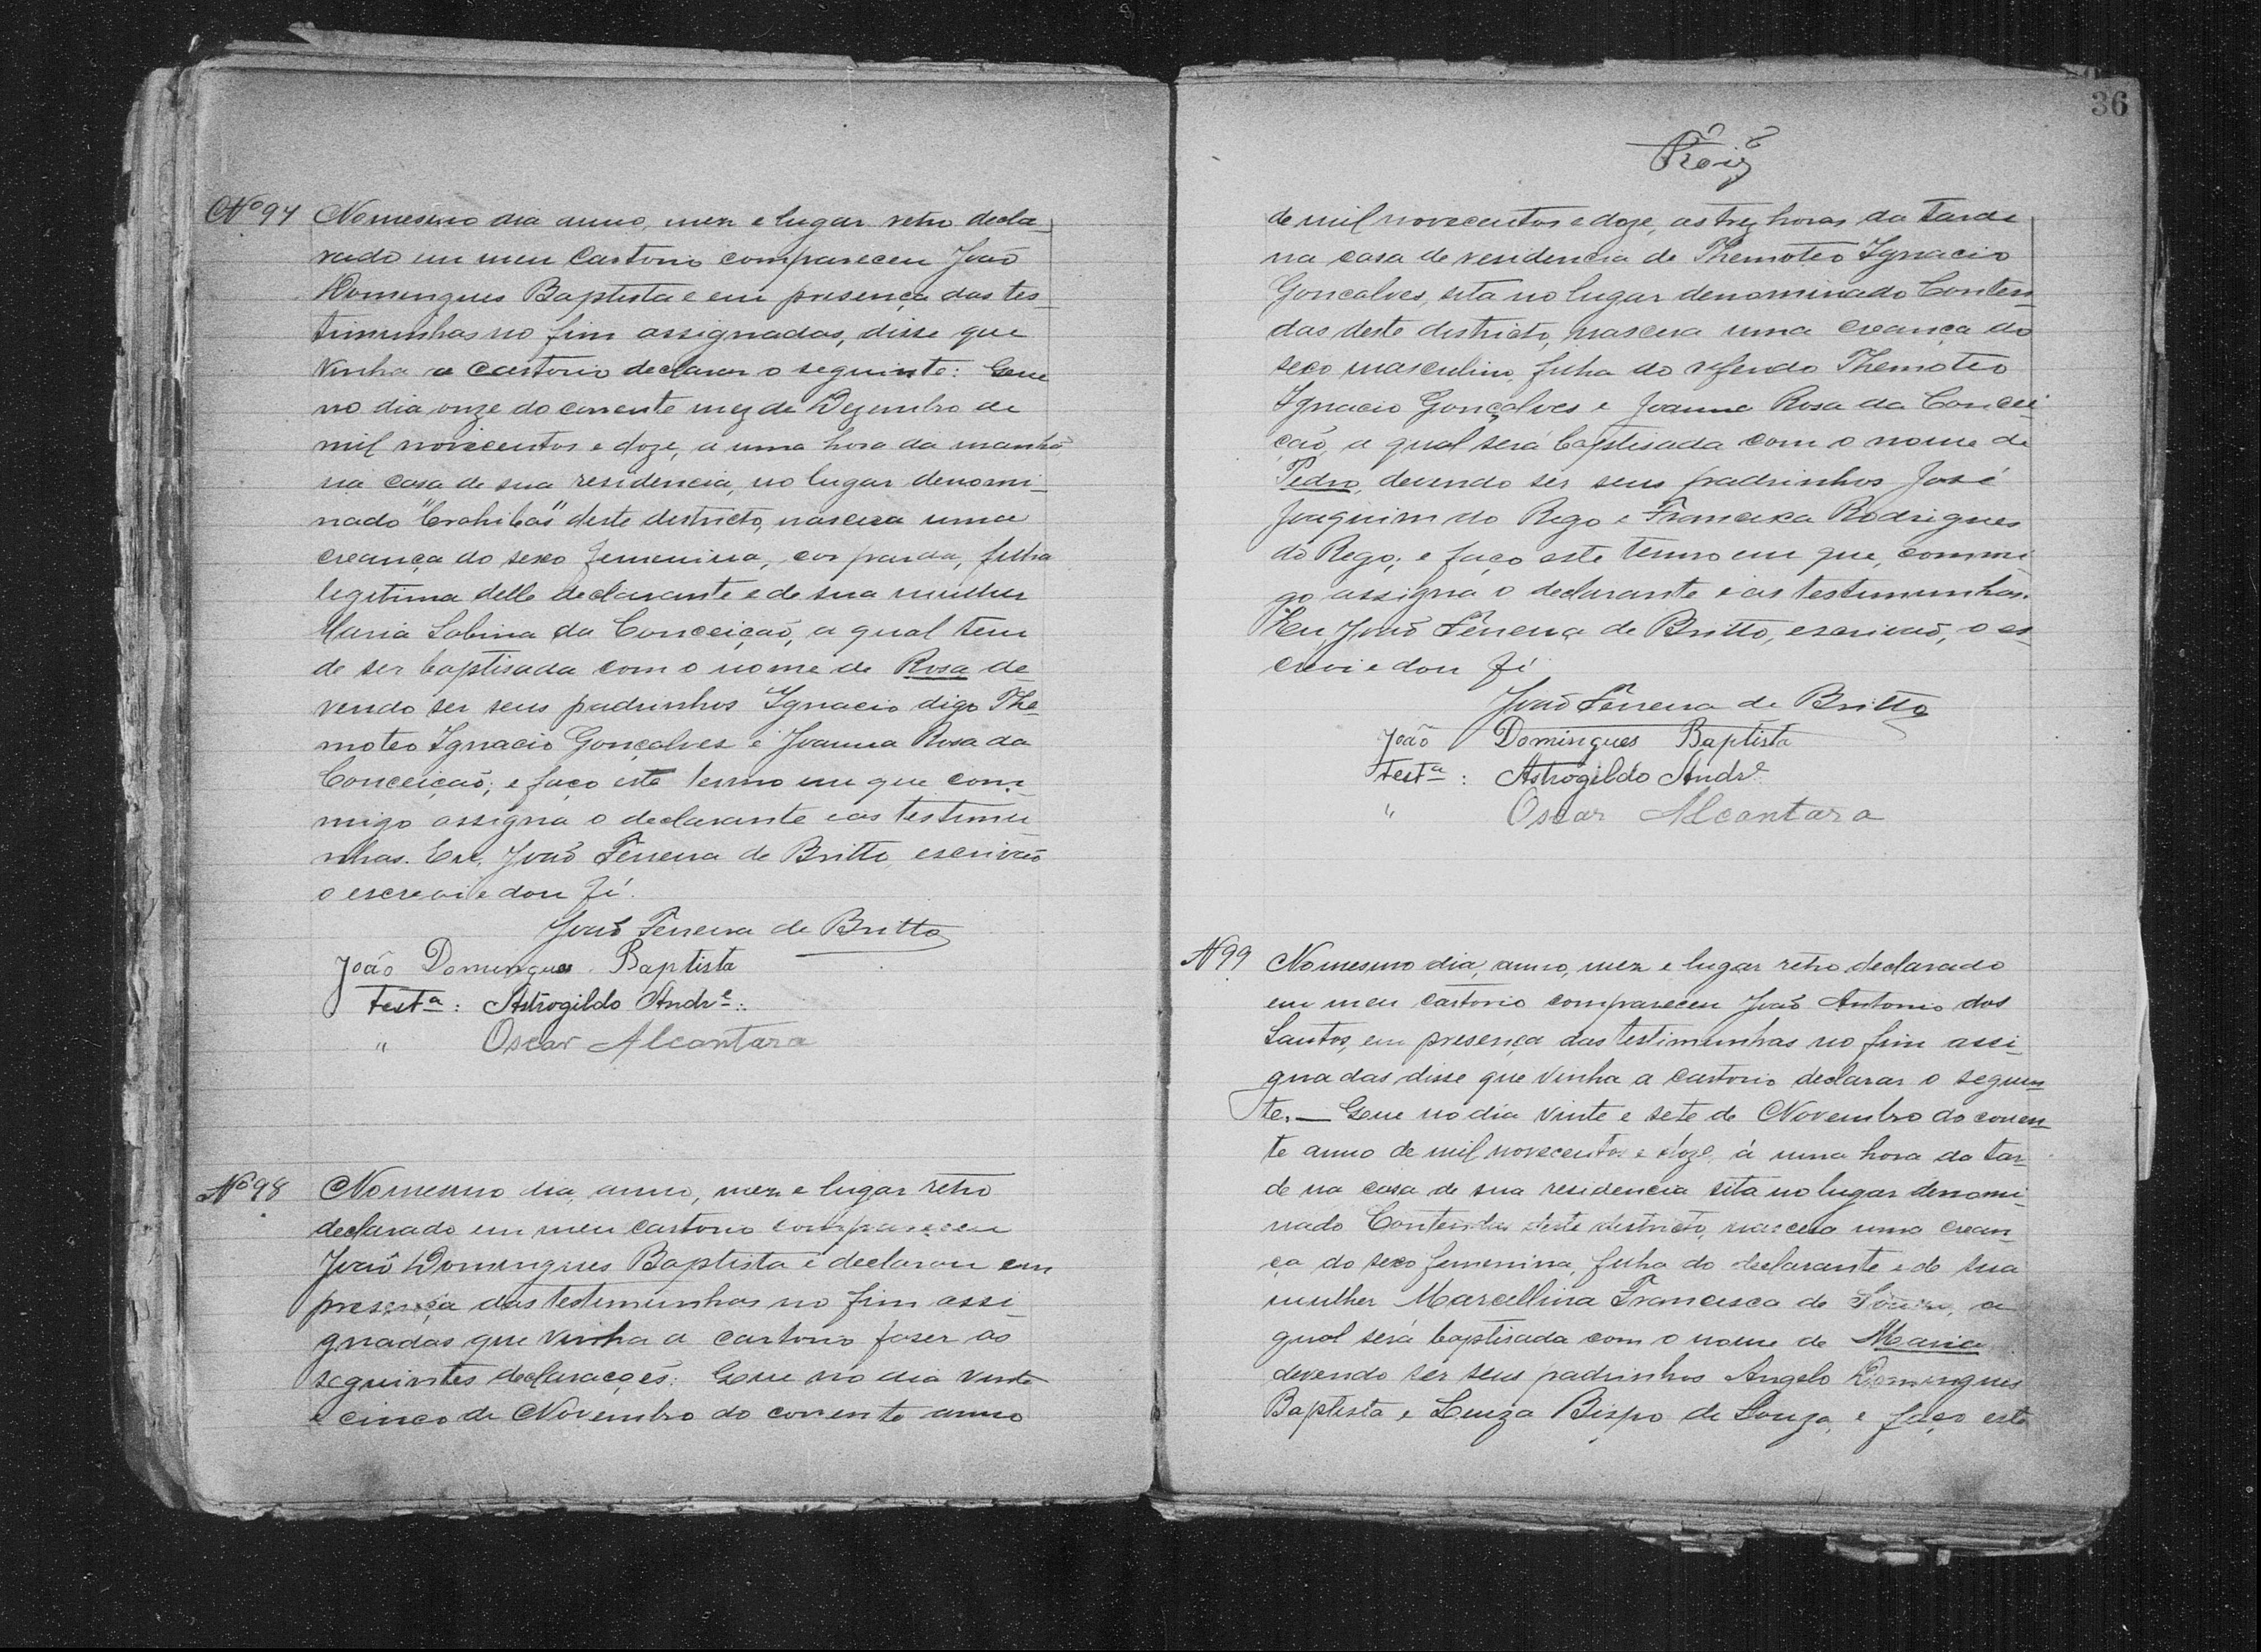 Nº 97 No mesmo dia anno, mez e lugar retro decla-
rado em meu Cartorio compareceu João
Domingues Baptista e em presença das tes-
timunhas no fim assignadas, disse que
vinha a cartorio declarar o seguinte: Que
no dia onze do corrente mez de Dezembro de
mil novecentos e doze, a uma hora da manhã
na casa de sua residencia, no lugar denomi-
nado deste districto, nascera uma
creança do sexo femenina, cor parda, filha
legitima delle declarante e de sua mulher
Maria Sabina da Conceição, a qual tem
de ser baptisada com o nome de Rosa de-
vendo ser seus padrinhos Ignacio digo The-
moteo Ignacio Gonçalves e Joanna Rosa da
Conceição; e faço este termo em que com-
migo assigna o declarante e as testimu-
nhas. Eu, João Ferreira de Britto, escrivão
o escrevi e dou fé.
João Ferreira de Britto
João Domingues Baptista
Testª: Astrogildo Andrᵉ
" Oscar Alcantara
Nº 98 No mesmo dia, anno, mez e lugar retro
declarado em meu cartorio compareceu
João Domingues Baptista e declarou em
presença das testimunhas no fim assi-
gnadas que vinha a cartorio faser as
seguintes declarações: Que no dia vinte
e cinco de Novembro do corrente anno
36
de mil novecentos e doze, as trez horas da tarde
na casa de residencia de Themoteo Ignacio
Goncalves, sita no lugar denominado Conten-
das deste districto, nascera uma creança do
sexo masculino, filha do referido Themoteo
Ignacio Gonçalves e Joanna Rosa da Concei-
ção, a qual será baptisada com o nome de
Pedro, devendo ser seus padrinhos José
Joaquim do Rego e Francisca Rodrigues
do Rego; e faço este termo em que, commi-
go assigna o declarante e as testimunhas.
Eu João Ferreira de Britto, escrivão, o es-
crevi e dou fé
João Ferreira de Britto
João Domingues Baptista
Testª: Astrogildo Andrᵉ
" Oscar Alcantara
Nº 99 No mesmo dia, anno, mez e lugar retro declarado
em meu cartorio compareceu João Antonio dos
Santos, em presença das testimunhas no fim assi-
gnadas disse que vinha a cartorio declarar o seguin-
te. — Que no dia vinte e sete de Novembro do corren-
te anno de mil novecentos e doze, á uma hora da tar-
de na casa de sua residencia sita no lugar denomi-
nado Contendas deste districto, nascera uma crean-
ça do sexo femenina, filha do declarante e de sua
mulher Marcellina Francisca de Souza, a
qual será baptisada com o nome de Maria
devendo ser seus padrinhos Angelo Domingues
Baptista e Luiza Bispo de Souza, e faço este